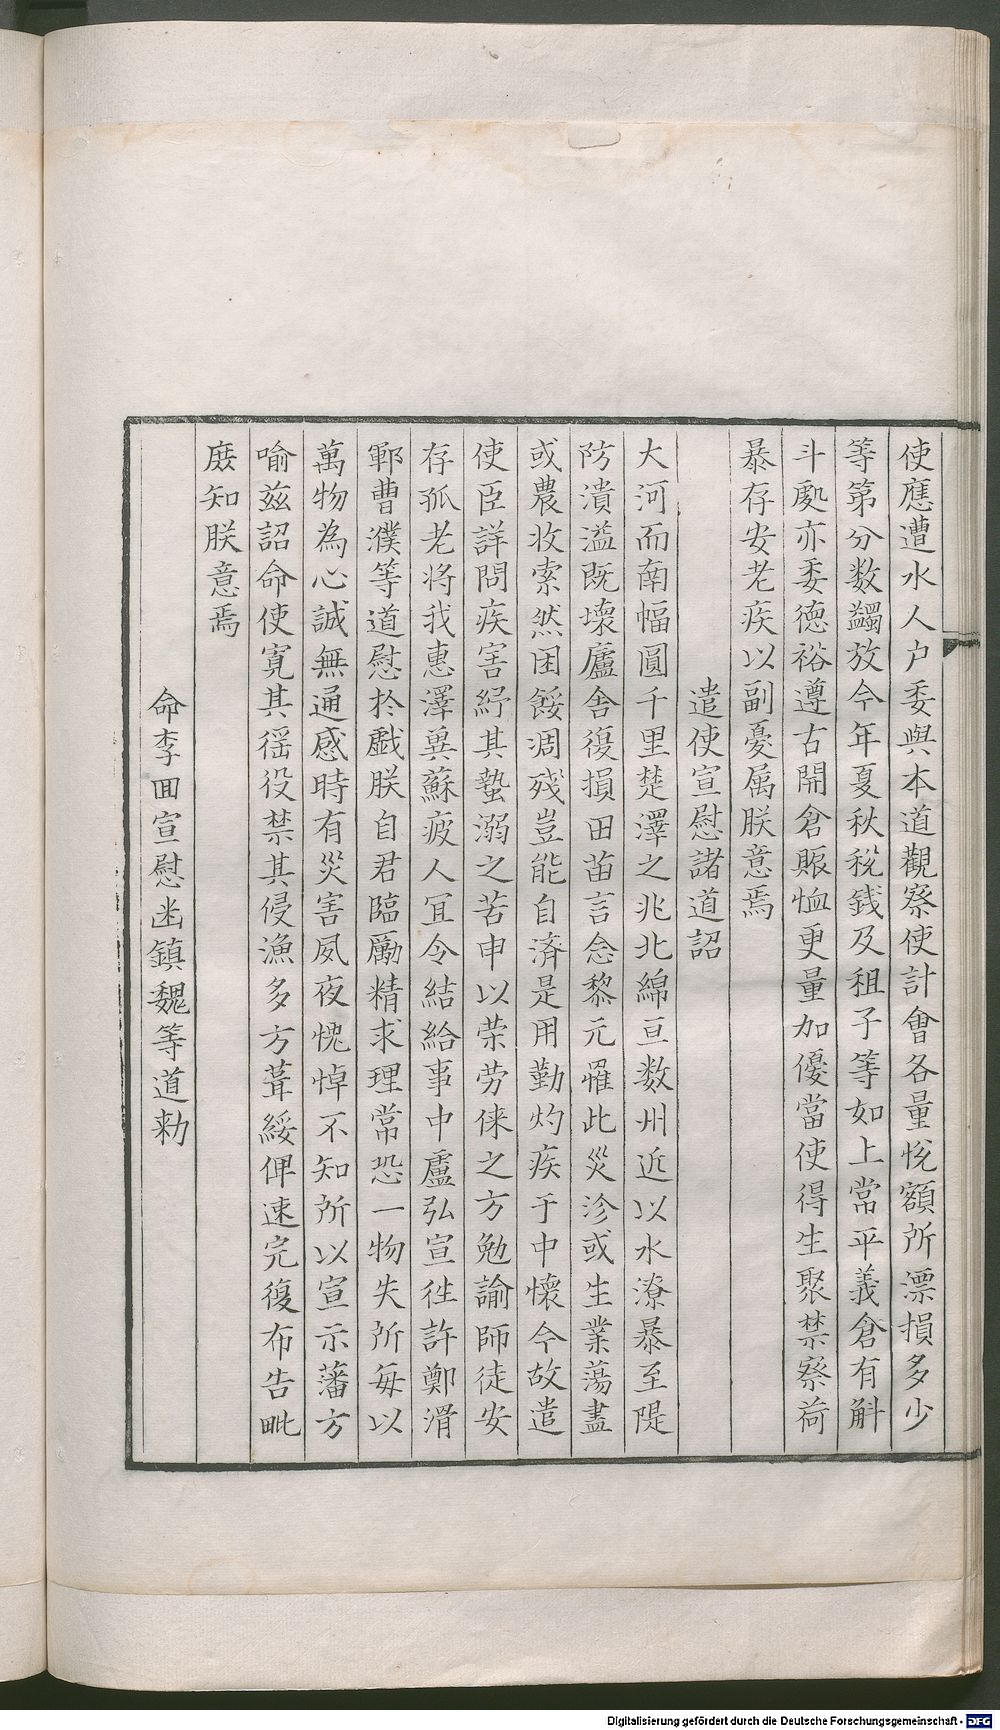 使應遭水人户委與本道觀察使計會各量悅額所漂損多少
等第分数蠲放今年夏秋稅錢及租子等如上常平義倉有斛
斗處亦委德裕遵古開倉賑恤更量加優當使得生聚禁察苛
暴存安老疾以副憂属朕意焉
遣使宣慰諸道詔
大河而南幅圓千里楚澤之北北綿亘数州近以水潦暴至隄
防潰溢既壞廬舍復損田苗言念黎元罹此災沴或生業蕩盡
或農收索然困餒凋殘豈能自濟是用勤灼疾于中懷今故遣
使臣詳問疾害紓其墊溺之苦申以荣劳徕之方勉諭師徒安
存孤老将我惠澤兾蘇疲人冝令結給事中盧弘宣徃許鄭滑
鄆曹濮等道慰扵戱朕自君臨勵精求理常恐一物失所毎以
萬物為心誠無通感時有災害夙夜愧悼不知所以宣示藩方
喻兹詔命使寛其徭役禁其侵漁多方葺綏俾速完復布告毗
庻知朕意焉
命李囬宣慰幽鎮魏等道勑
Digitalisierung gefördert durch die Deutsche Forschungsgemeinschaft - DFG